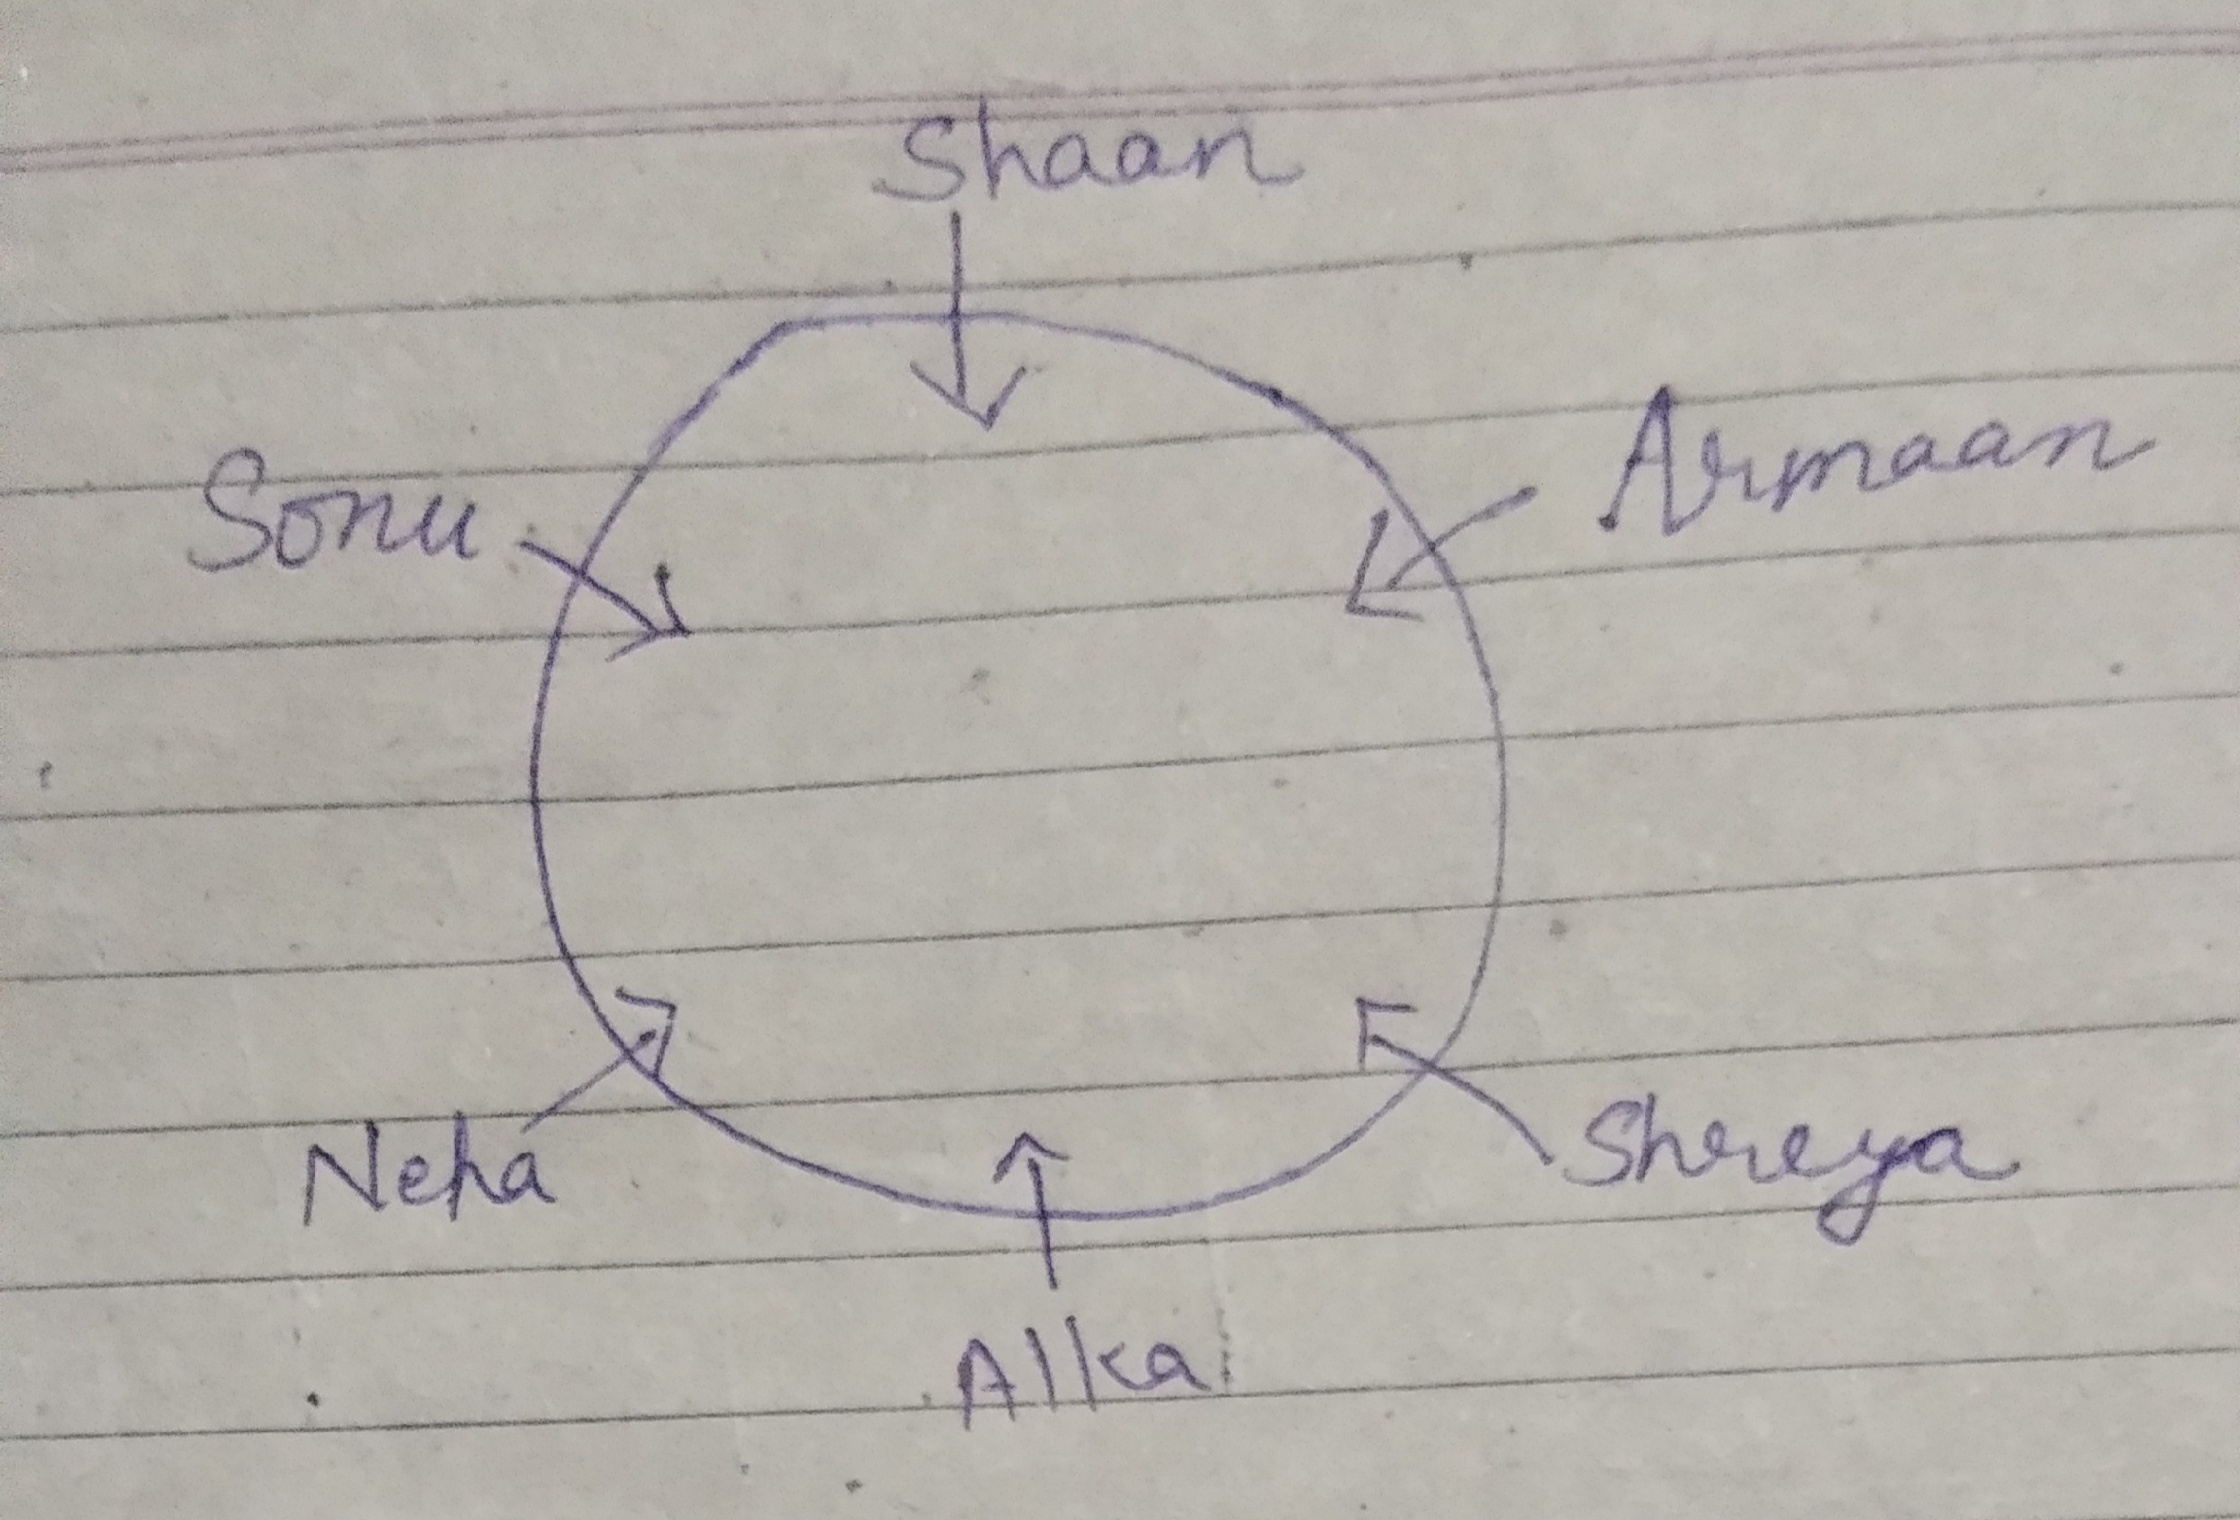 Shaan
Armaan
Sonu
Neha
Shreya
Alka